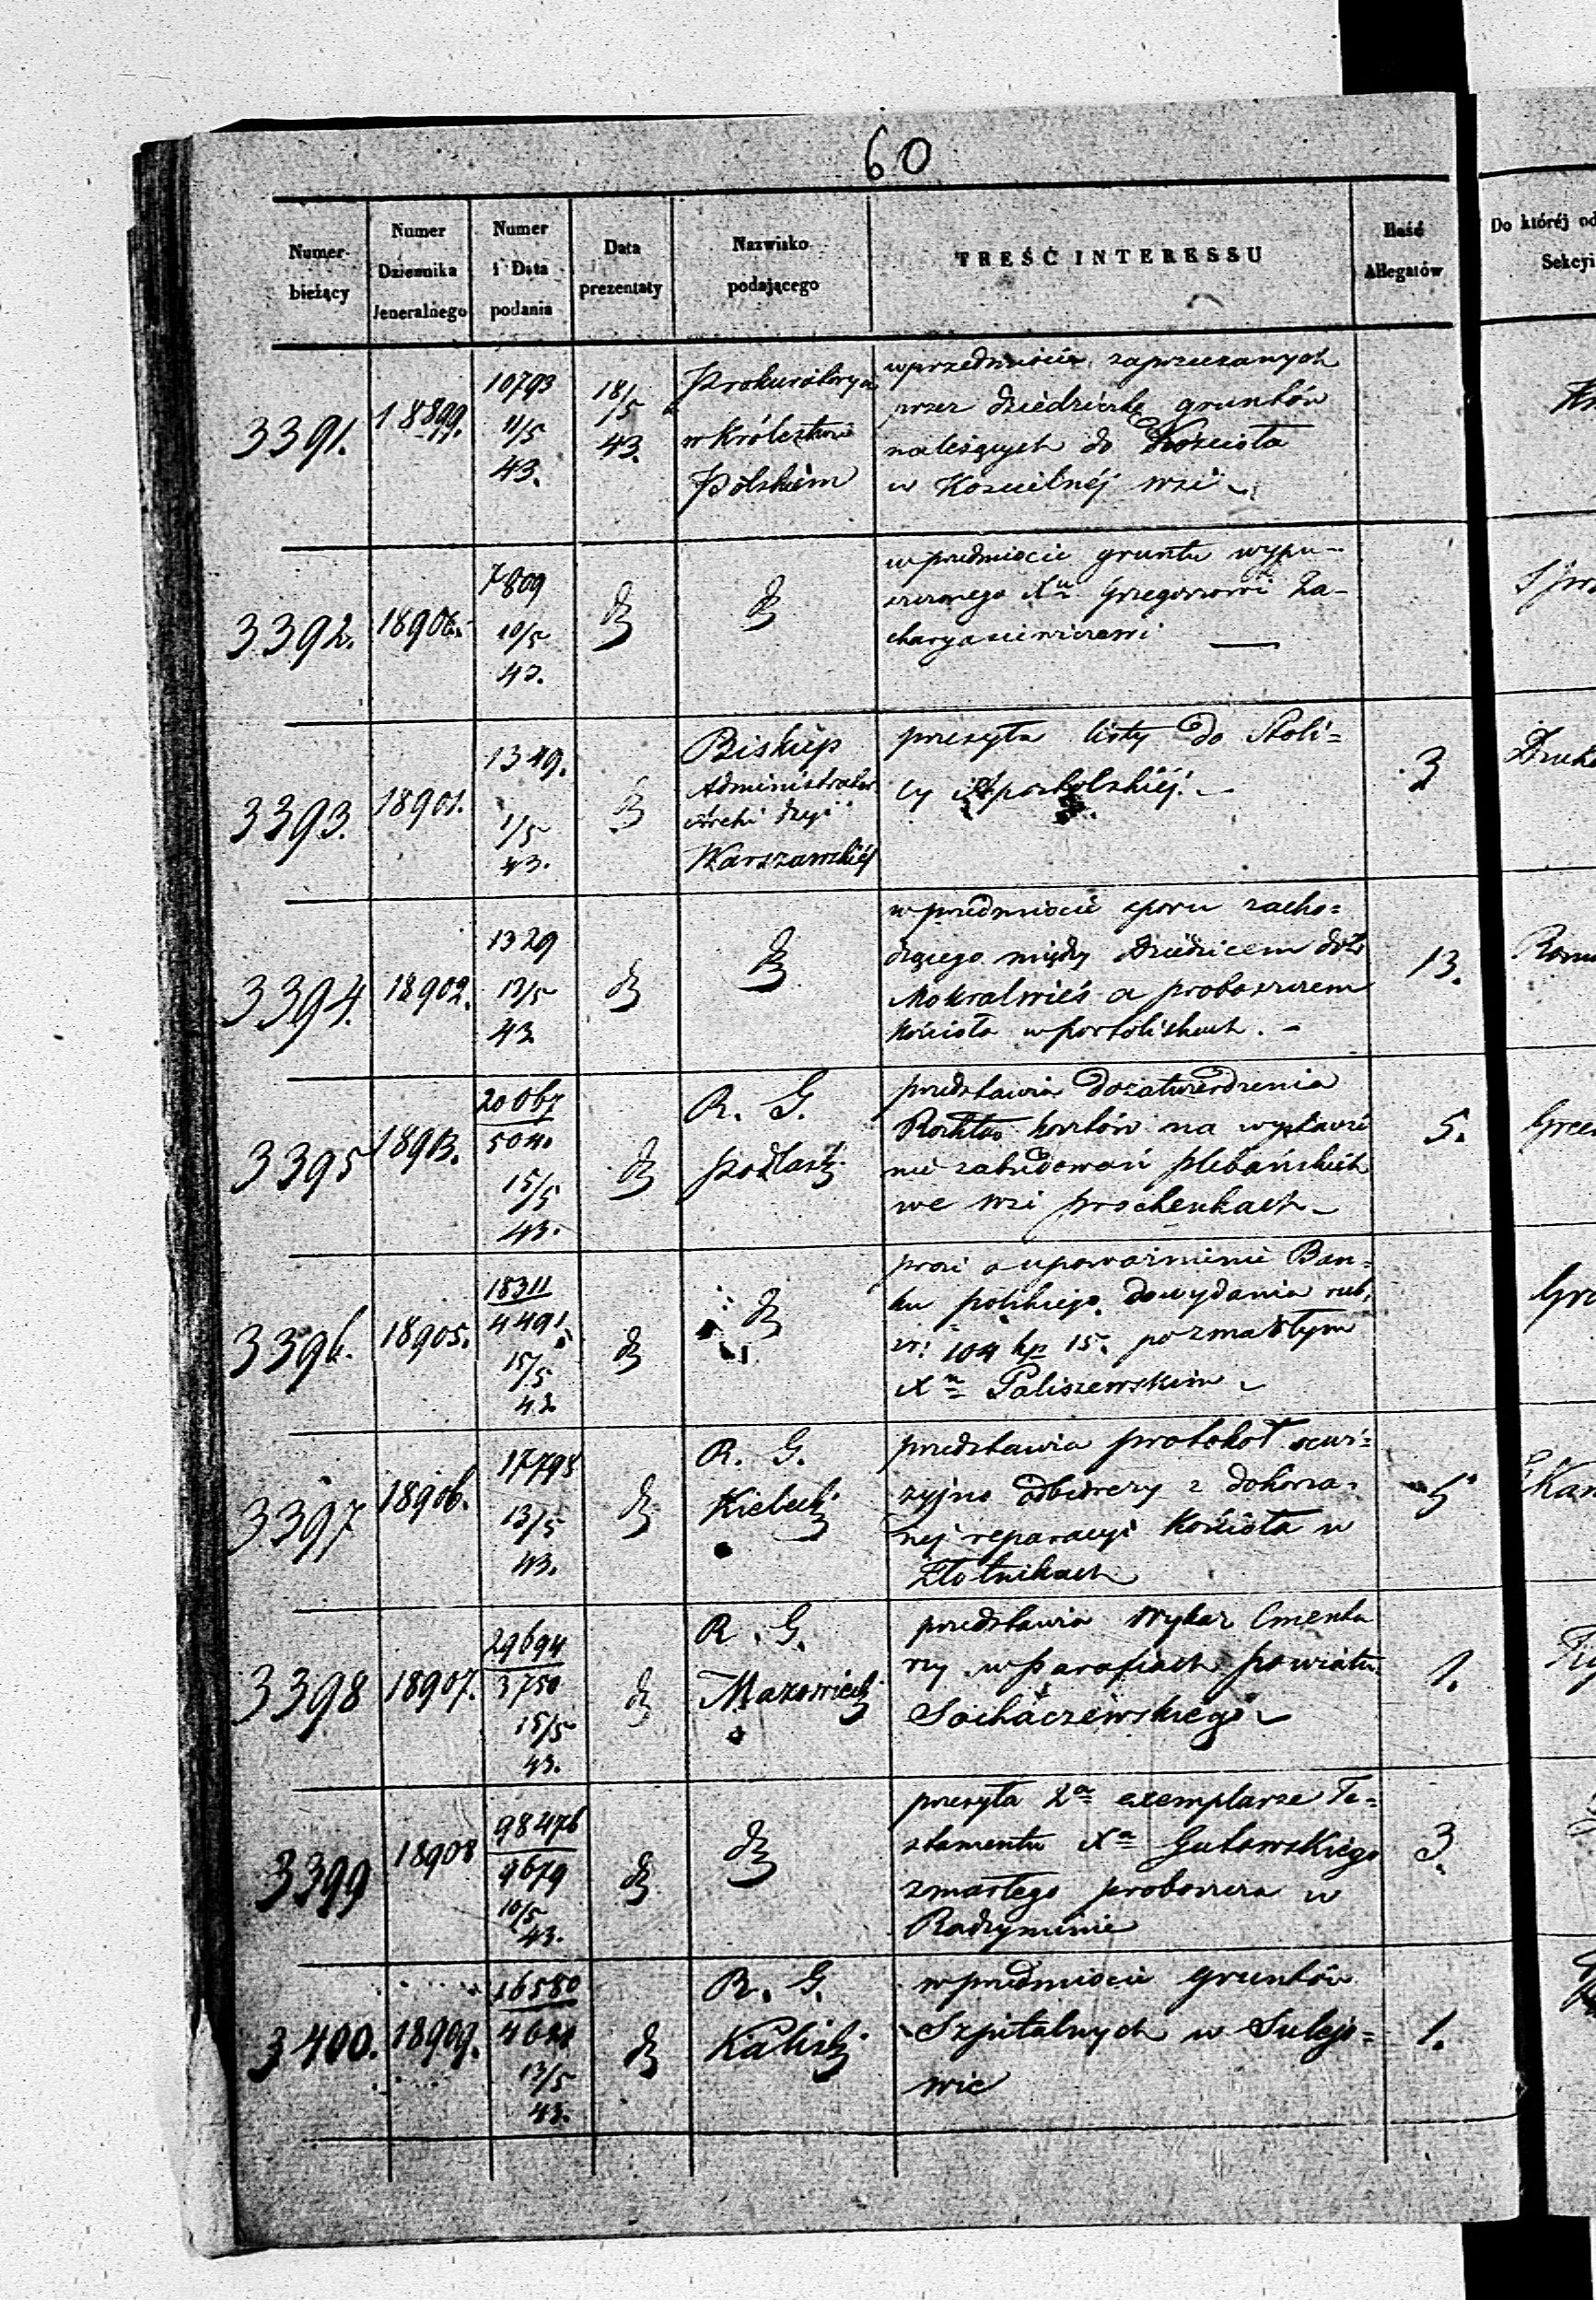 60
Numer bieżący
Numer Dziennika Jeneralnego
Numer i Data podania
Data prezentaty
Nazwisko podającego
TREŚĆ INTERESSU
Ilość Allegatów
Do której od
Sekcyi
3391.
18899.
10793
11/5
43.
18/5
43.
Prokuratorya
w Królestwie
Polskiem
w przedmiocie zaprzeczanych
przez dziedziczkę gruntów
należących do Kościoła
w Koscielnéj wsi
3392.
7809
10/5
43.
dto
dto
w przedmiocie gruntu wypu-
szczonego Xu Grzegorzowi Za-
charyasiewiczowi
3393.
18901.
1349.
1/5
43.
dto
Biskup
Administrator
Archi dyi
Warszawskiéj
przesyła listy do Stoli=
cy Apostolskiéj
3
3394.
18902.
1329
12/5
43
dto
dto
w przedmiocie sporu zacho=
dzącego między Dziedzicem dóbr
Mokralwieś a proboszczem
Kościoła w postoliskach.
13.
3395
18903.
20067
504.
15/5
43.
dto
R. G.
Podlaski
przedstawia do zatwierdzenia
Rozkład kosztów na wystawie
nie zabudowań plebańskich
we wsi prochenkach
5.
3396.
18905.
18311
4491
15/5
43
dto
dto
prosi o upoważnienie Ban=
ku polskiego do wydania rub.
sr: 104 kp 15. po zmarłym
Xu Paliszewskim
3397
18906.
17798
13/5
43.
dto
R. G.
Kielecki
przedstawia protokół rewi=
zyjno odbiorczy z dokona=
nej reparacyi Kościoła w
Złotnikach
5
3398
18907.
29694
3750
15/5
43.
dto
R. G.
Mazowiecki
przedstawia wykaz Cmenta
rzy w Parafiach powiatu
Sochaczewskiego
1.
3399
18908
98476
9679
10/5
43.
dto
dto
przesyła 2a exemplarze Te=
stamentu Xa Gutowskiego
zmarłego proboszcza w
Radzyminie
3.
3400.
18909.
16580
13/5
43.
dto
R. G.
Kaliski
w przedmiocie gruntów
Szpitalnych w Sulejo=
wie
1.